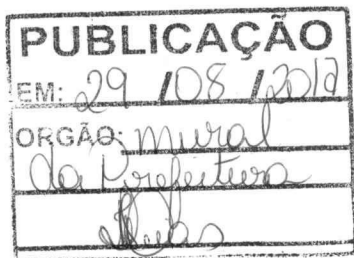 PUBLICAÇÃO
EM: 29 / 08 / 2017
ORGÃO: mural
da Prefeitura